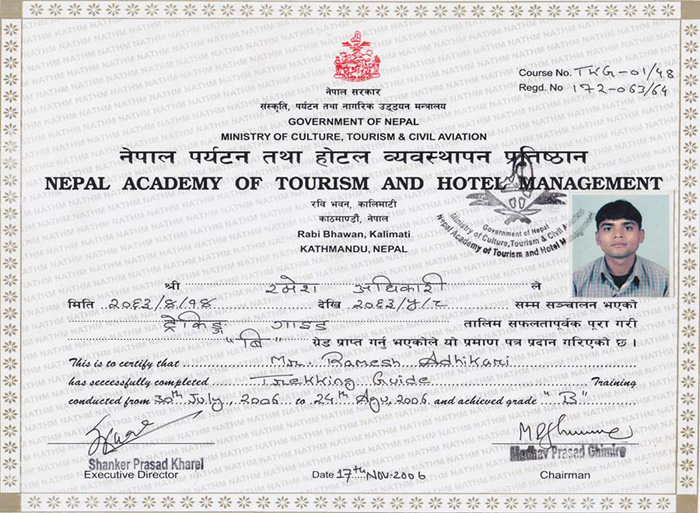 Course No. TKG-01/48
Regd. No 172-063/64
नेपाल सरकार
संस्कृति, पर्यटन तथा नागरिक उड्डयन मन्त्रालय
GOVERNMENT OF NEPAL
MINISTRY OF CULTURE, TOURISM & CIVIL AVIATION
नेपाल पर्यटन तथा होटल व्यवस्थापन प्रतिष्ठान
NEPAL ACADEMY OF TOURISM AND HOTEL MANAGEMENT
रवि भवन, कालिमाटी
काठमाण्डौं, नेपाल
Rabi Bhawan, Kalimati
KATHMANDU, NEPAL
Government of Nepal
Ministry of Culture, Tourism & Civil
Nepal Academy of Tourism and Hotel
श्री रमेश अधिकारी ले
मिति २०६३/४/१४ देखि २०६३/५/८ सम्म सञ्चालन भएको
ट्रेकिङ्ग गाइड तालिम सफलतापूर्वक पूरा गरी
"बि" ग्रेड प्राप्त गर्नु भएकोले यो प्रमाण पत्र प्रदान गरिएको छ ।
This is to certify that Mr. Ramesh Adhikari
has successfully completed Trekking Guide Training
conducted from 30th July, 2006 to 24th Agu, 2006 and achieved grade "B"
Shanker Prasad Kharel
Executive Director
Date 17th Nov-2006
Madhav Prasad Ghimire
Chairman